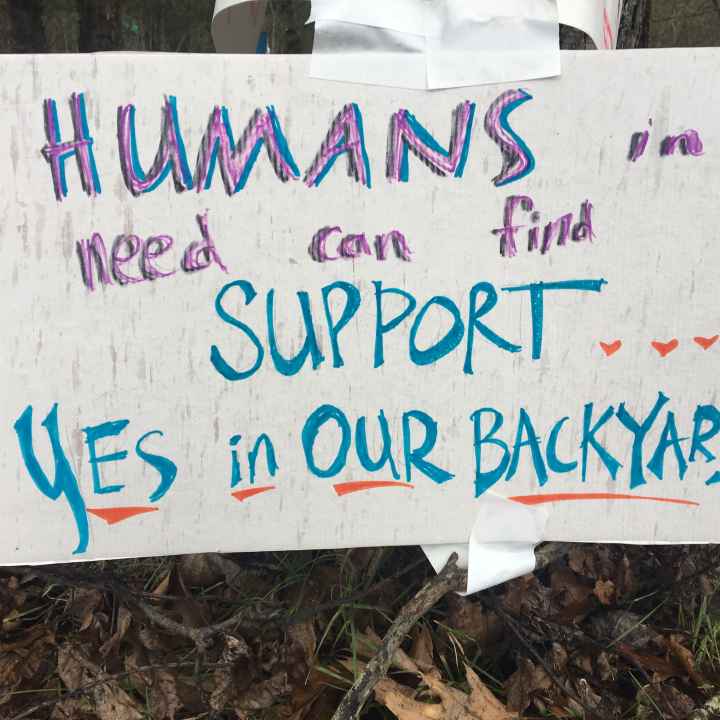 HUMANS in
need can find
SUPPORT...
YES in OUR BACKYAR